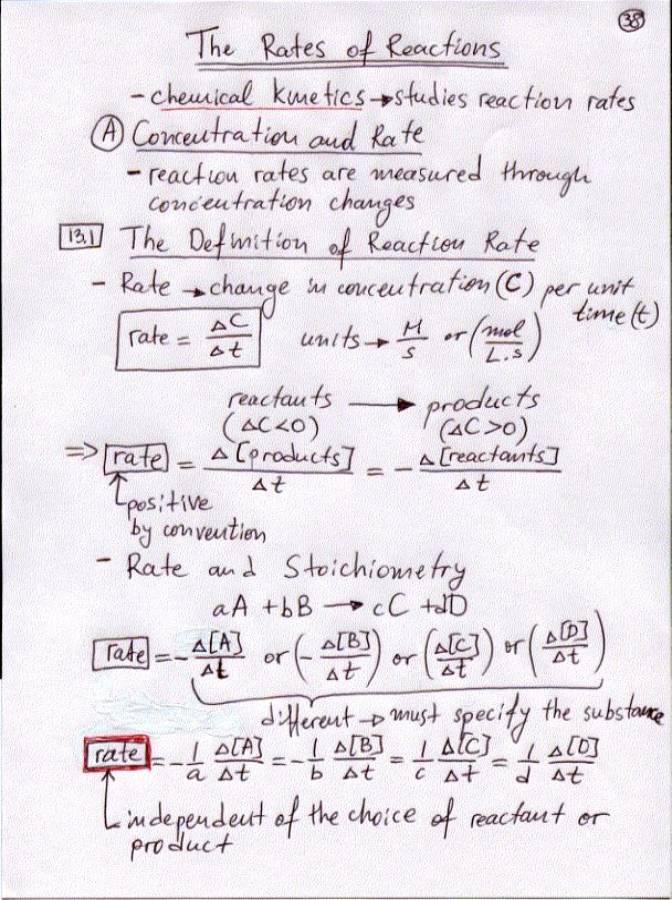 38
The Rates of Reactions
- chemical kinetics → studies reaction rates
(A) Concentration and Rate
- reaction rates are measured through
concentration changes
13.1 The Definition of Reaction Rate
- Rate → change in concentration (C) per unit
time (t)
rate = ΔC/Δt units → M/s or (mol/L.s)
reactants → products
(ΔC<0) (ΔC>0)
=> rate = Δ[products]/Δt = - Δ[reactants]/Δt
positive
by convention
- Rate and Stoichiometry
aA + bB → cC + dD
rate = - Δ[A]/Δt or (- Δ[B]/Δt) or (Δ[C]/Δt) or (Δ[D]/Δt)
different → must specify the substance
rate = - 1/a Δ[A]/Δt = - 1/b Δ[B]/Δt = 1/c Δ[C]/Δt = 1/d Δ[D]/Δt
independent of the choice of reactant or
product